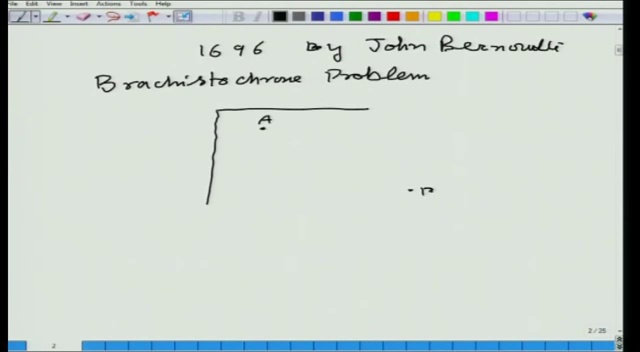 Edit View Insert Actions Tools Help
1696 by John Bernoulli
Brachistochrone Problem
A
2 / 25
2